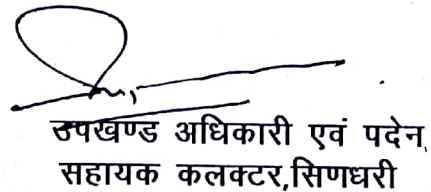 उपखण्ड अधिकारी एवं पदेन,
सहायक कलक्टर,सिणधरी